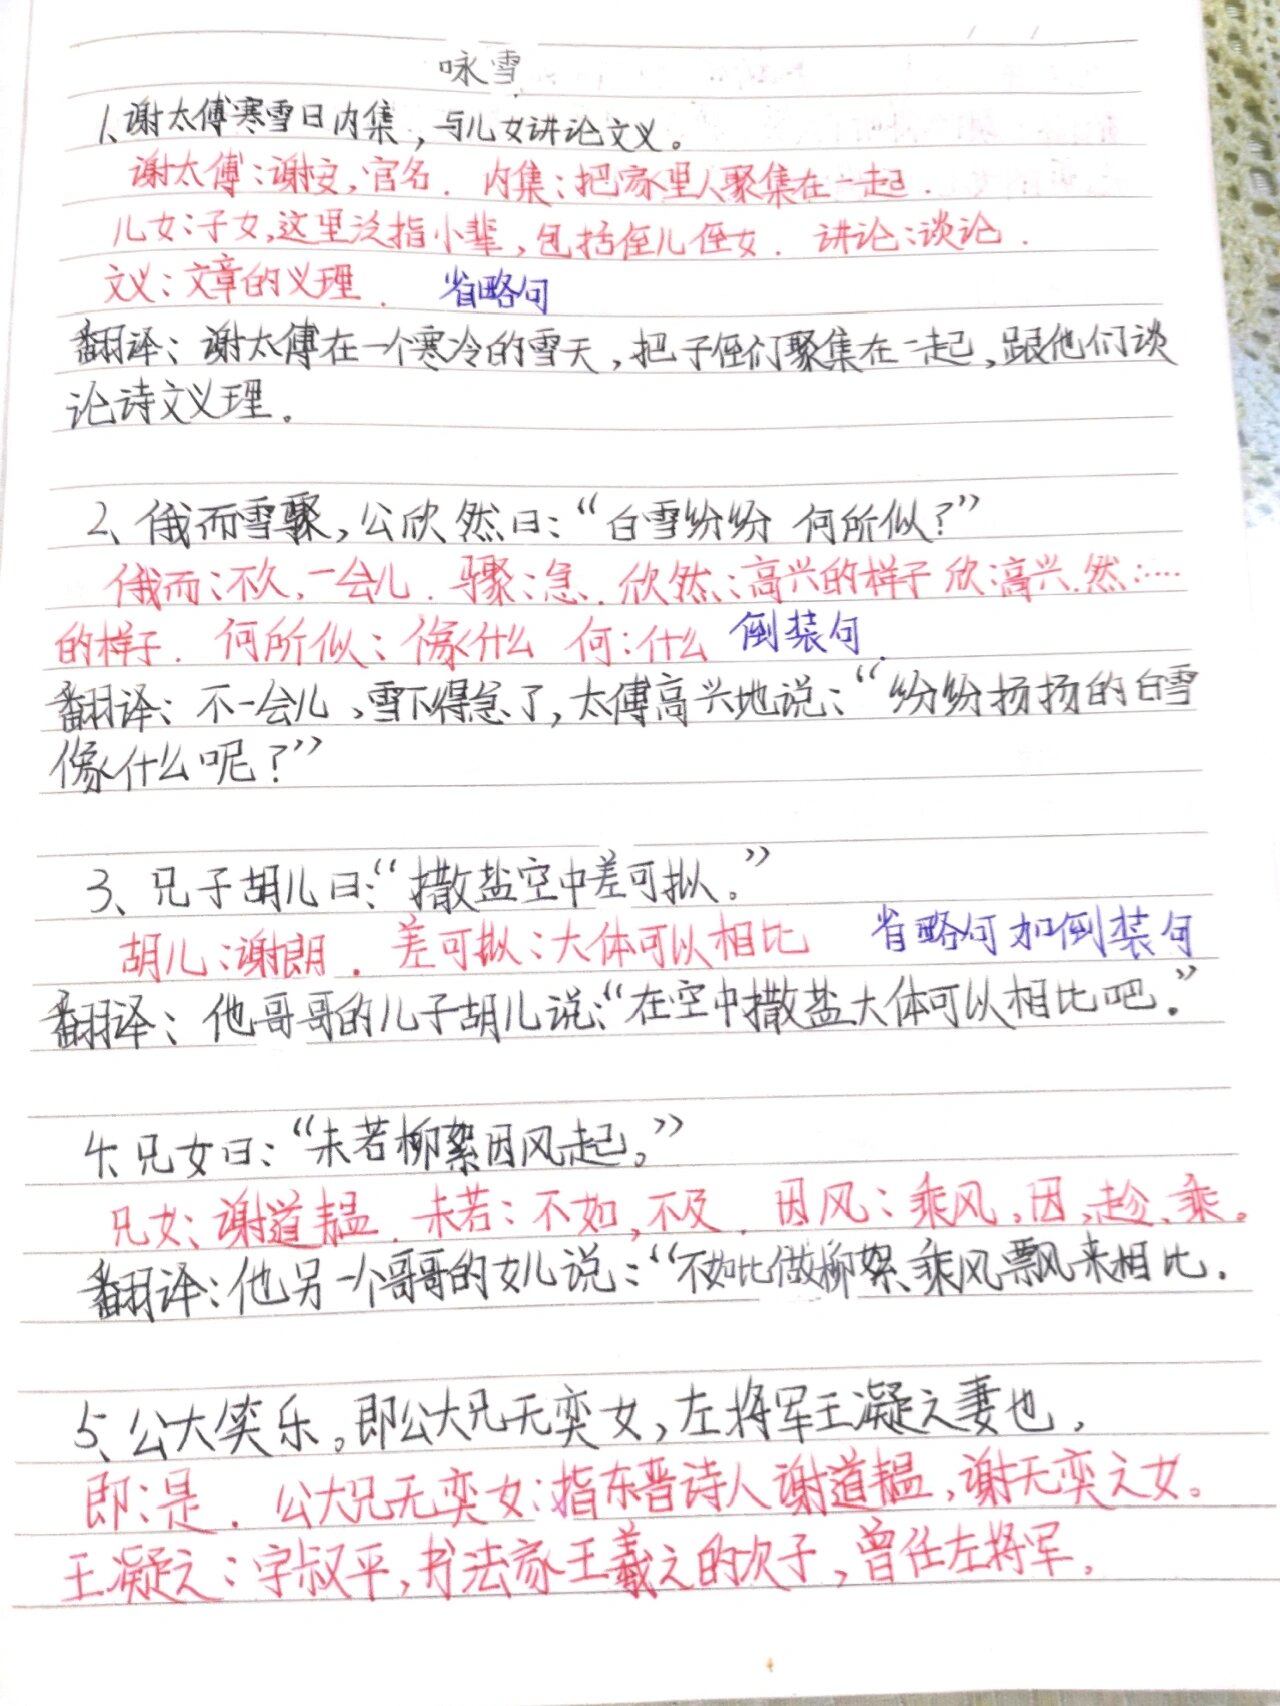 咏雪
1、谢太傅寒雪日内集，与儿女讲论文义。
谢太傅：谢安，官名．内集：把家里人聚集在一起．
儿女：子女，这里泛指小辈，包括侄儿侄女．讲论：谈论．
文义：文章的义理．省略句
翻译：谢太傅在一个寒冷的雪天，把子侄们聚集在一起，跟他们谈
论诗文义理。
2、俄而雪骤，公欣然曰：“白雪纷纷何所似？”
俄而：不久，一会儿．骤：急．欣然：高兴的样子 欣：高兴．然：……
的样子．何所似：像什么 何：什么 倒装句．
翻译：不一会儿，雪下得急了，太傅高兴地说：“纷纷扬扬的白雪
像什么呢？”
3、兄子胡儿曰：“撒盐空中差可拟。”
胡儿：谢朗．差可拟：大体可以相比 省略句和倒装句
翻译：他哥哥的儿子胡儿说：“在空中撒盐大体可以相比吧．”
4、兄女曰：“未若柳絮因风起。”
兄女：谢道韫．未若：不如，不及．因风：乘风，因，趁、乘。
翻译：他另一个哥哥的女儿说：“不如比做柳絮乘风飘来相比．
5、公大笑乐。即公大兄无奕女，左将军王凝之妻也，
即：是．公大兄无奕女：指东晋诗人谢道韫，谢无奕之女。
王凝之：字叔平，书法家王羲之的次子，曾任左将军，